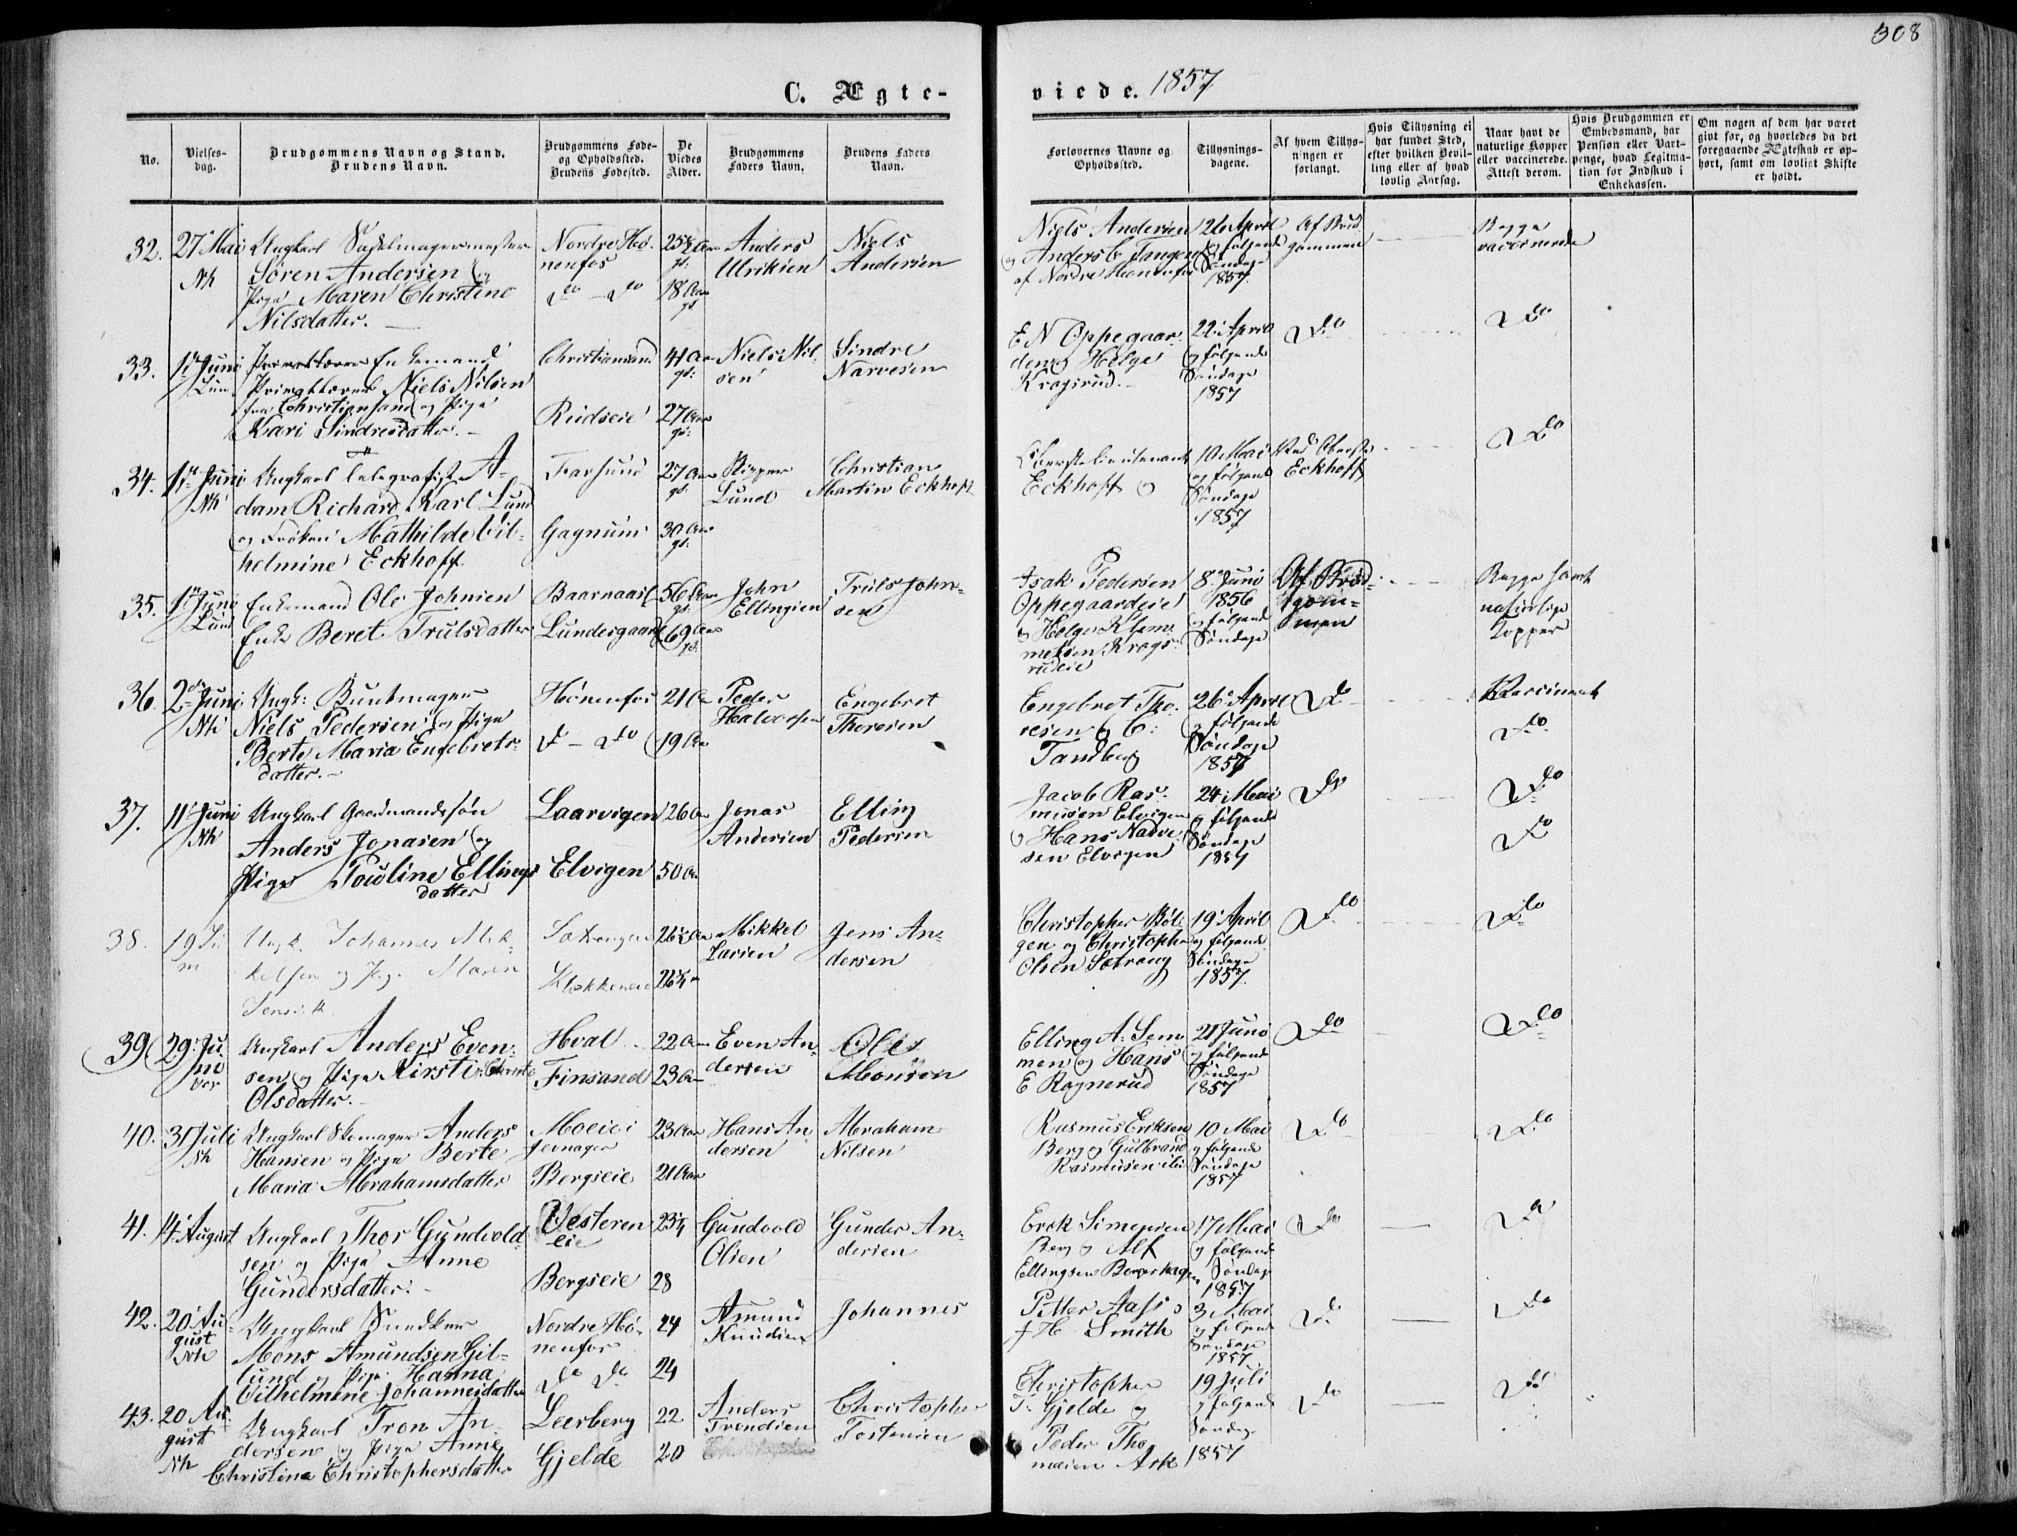 308
C. Ægte-
viede. 1857
No.
Vielses-
dag.
Brudgommens Navn og Stand.
Brudens Navn.
Brudgommens Føde-
og Opholdssted.
Brudens Fødested.
De
Viedes
Alder.
Brudgommens
Faders Navn.
Brudens Faders
Navn.
Forlovernes Navne og
Opholdssted.
Tillysnings-
dagene.
Af hvem Tillys-
ningen er
forlangt.
Hvis Tillysning ei
har fundet Sted,
efter hvilken Bevil-
ling eller af hvad
lovlig Aarsag.
Naar havt de
naturlige Kopper
eller vaccinerede.
Attest derom.
Hvis Brudgommen er
Embedsmand, har
Pension eller Vart-
penge, hvad Legitima-
tion for Indskud i
Enkekassen.
Om nogen af dem har været
givt før, og hvorledes da det
foregaaende Ægteskab er op-
hørt, samt om lovligt Skifte
er holdt.
32. 27 Mai Ungkarl Sadelmagermester
Nh Søren Andersen og
Pige Maren Christine
Nilsdatter.
Nordre Høe-
nenfos
Do - Do
25½ Aar
gl:
18 Aar
gl
Anders
Ulriksen
Niels
Andersen
Niels Andersen
og Anders Tangen
af Nordre Hønenfos
26 April
og følgende
Søndage
1857.
Af Brud
gommen
Begge
vaccinerede
33. 1 Juni Enkemand
Lun Privatlærer Niels Nilsen
fra Christiansand og Pige
Kari Sindresdatter.
Christiansand
Rudseie
41 Aar
gl:
27 Aar
gl:
Niels Nil-
sen
Sindre
Narvesen
E N Oppegaar-
den og Helge
Kragsrud.
22 April
og følgende
Søndage
1857
Do
Do
34. 1 Juni Ungkarl Telegrafist A-
Nh dam Richard Karl Lund
og Frøken Mathilde Vil-
helmine Eckhoff
Farsund
Gagnum
27 Aar
gl:
30 Aar
gl:
Skipper
Lund
Christian
Martin Eckhoff
Oberstlieutenant
Eckhoff og
10 Mai
og følgende
Søndage
1857
Eckhoff
Do
35. 1 Juni Enkemand Ole Johnsen
Lund Enke Beret Trulsdatter
Lundesgaard
56 Aar
gl:
69 Aar
gl:
John
Ellingsen
Truls John-
sen
Isak Pedersen
Oppegaardeie
og Helge Klem-
metsen Krags-
rudeie
8 Juni
1856
og følgende
Søndage
Af Brud-
gom-
men
Begge havt
naturlige
Kopper
36. 2 Juni Ungk: Buntmager
Nh Niels Pedersen og Pige
Berte Maria Engebrets-
datter.
Hønenfos
Do - Do
21 Aar
19 Aar
Peder
Halvorsen
Engebret
Thoresen
Engebret Tho-
resen og C:
Tandberg
26 April
og følgende
Søndage
1857
Do
Vaccineret
Do
37. 11 Juni Ungkarl Gaardmandssøn
Nh Anders Jonasen og
Pige Pouline Ellings
datter
Laarvigen
Elvigen
26 Aar
50 Aar
Jonas
Andersen
Elling
Pedersen
Jacob Ras-
mussen Elvigen
og Hans Narve-
sen Elvigen
24 Mai
og følgende
Søndage
1857
Do
Do
Do
38. 19 Ju
ni Ungk. Johannes Mik-
kelsen og Pige Maren
Jensd.
Sætrangen
Klækkeneie
26½ Aar
26¼
Mikkel
Larsen
Jens An-
dersen
Christopher Bøl-
gen og Christopher
Olsen Sætrang
19 April
og følgende
Søndage
1857.
Do
Do
39 29 Ju
ni
Vor
Ungkarl Anders Even-
sen og Pige Kirsti
Olsdatter.
Hval
Finsand
22 Aar
23 Aar
Even An-
dersen
Ole
Monsen
Elling A. Sem-
men og Hans
E Ragnerud
21 Juni
og følgende
Søndage
1857
Do
Do
40. 31 Juli Ungkarl Skomager Anders
Nh Hansen og Pige Berte
Maria Abrahamsdatter
Moeie i
Jevnager
Bergseie
23 Aar
21 Aar
Hans An-
dersen
Abraham
Nilsen
Rasmus Eriksen
Berg og Gulbrand
Rasmusen
10 Mai
og følgende
Søndage
1857
Do
Do
41. 14 August Ungkarl Thor Gundvold-
sen og Pige Anne
Gundersdatter.
Vesteren
eie
Bergseie
23¼
28
Gundvold
Olsen
Gunder An-
dersen
Erek Simensen
Berg og Alf
Ellingsen
17 Mai
og følgende
Søndage
1857
Do
Do
42. 20 Au-
gust
Nh
Ungkarl Snedker
Mons Amundsen Gil-
lund og Pige Hanna
Vilhelmine Johannesdatter
Nordre Hø-
nenfos
Do Do
24
24
Amund
Knudsen
Johannes
Petter Aass
H. Smith
3 Mai
og følgende
Søndage
1857
Do
Do
43. 20 Au
gust
Nh
Ungkarl Tron An-
dersen og Pige Anne
Christine Christophersdatter
Leerberg
Gjelde
22
20
Anders
Trondsen
Christopher
Tostensen
Christopher
T. Gjelde og
Peder Tho
mesen Ask
19 Juli
og følgende
Søndage
1857
Do
Do